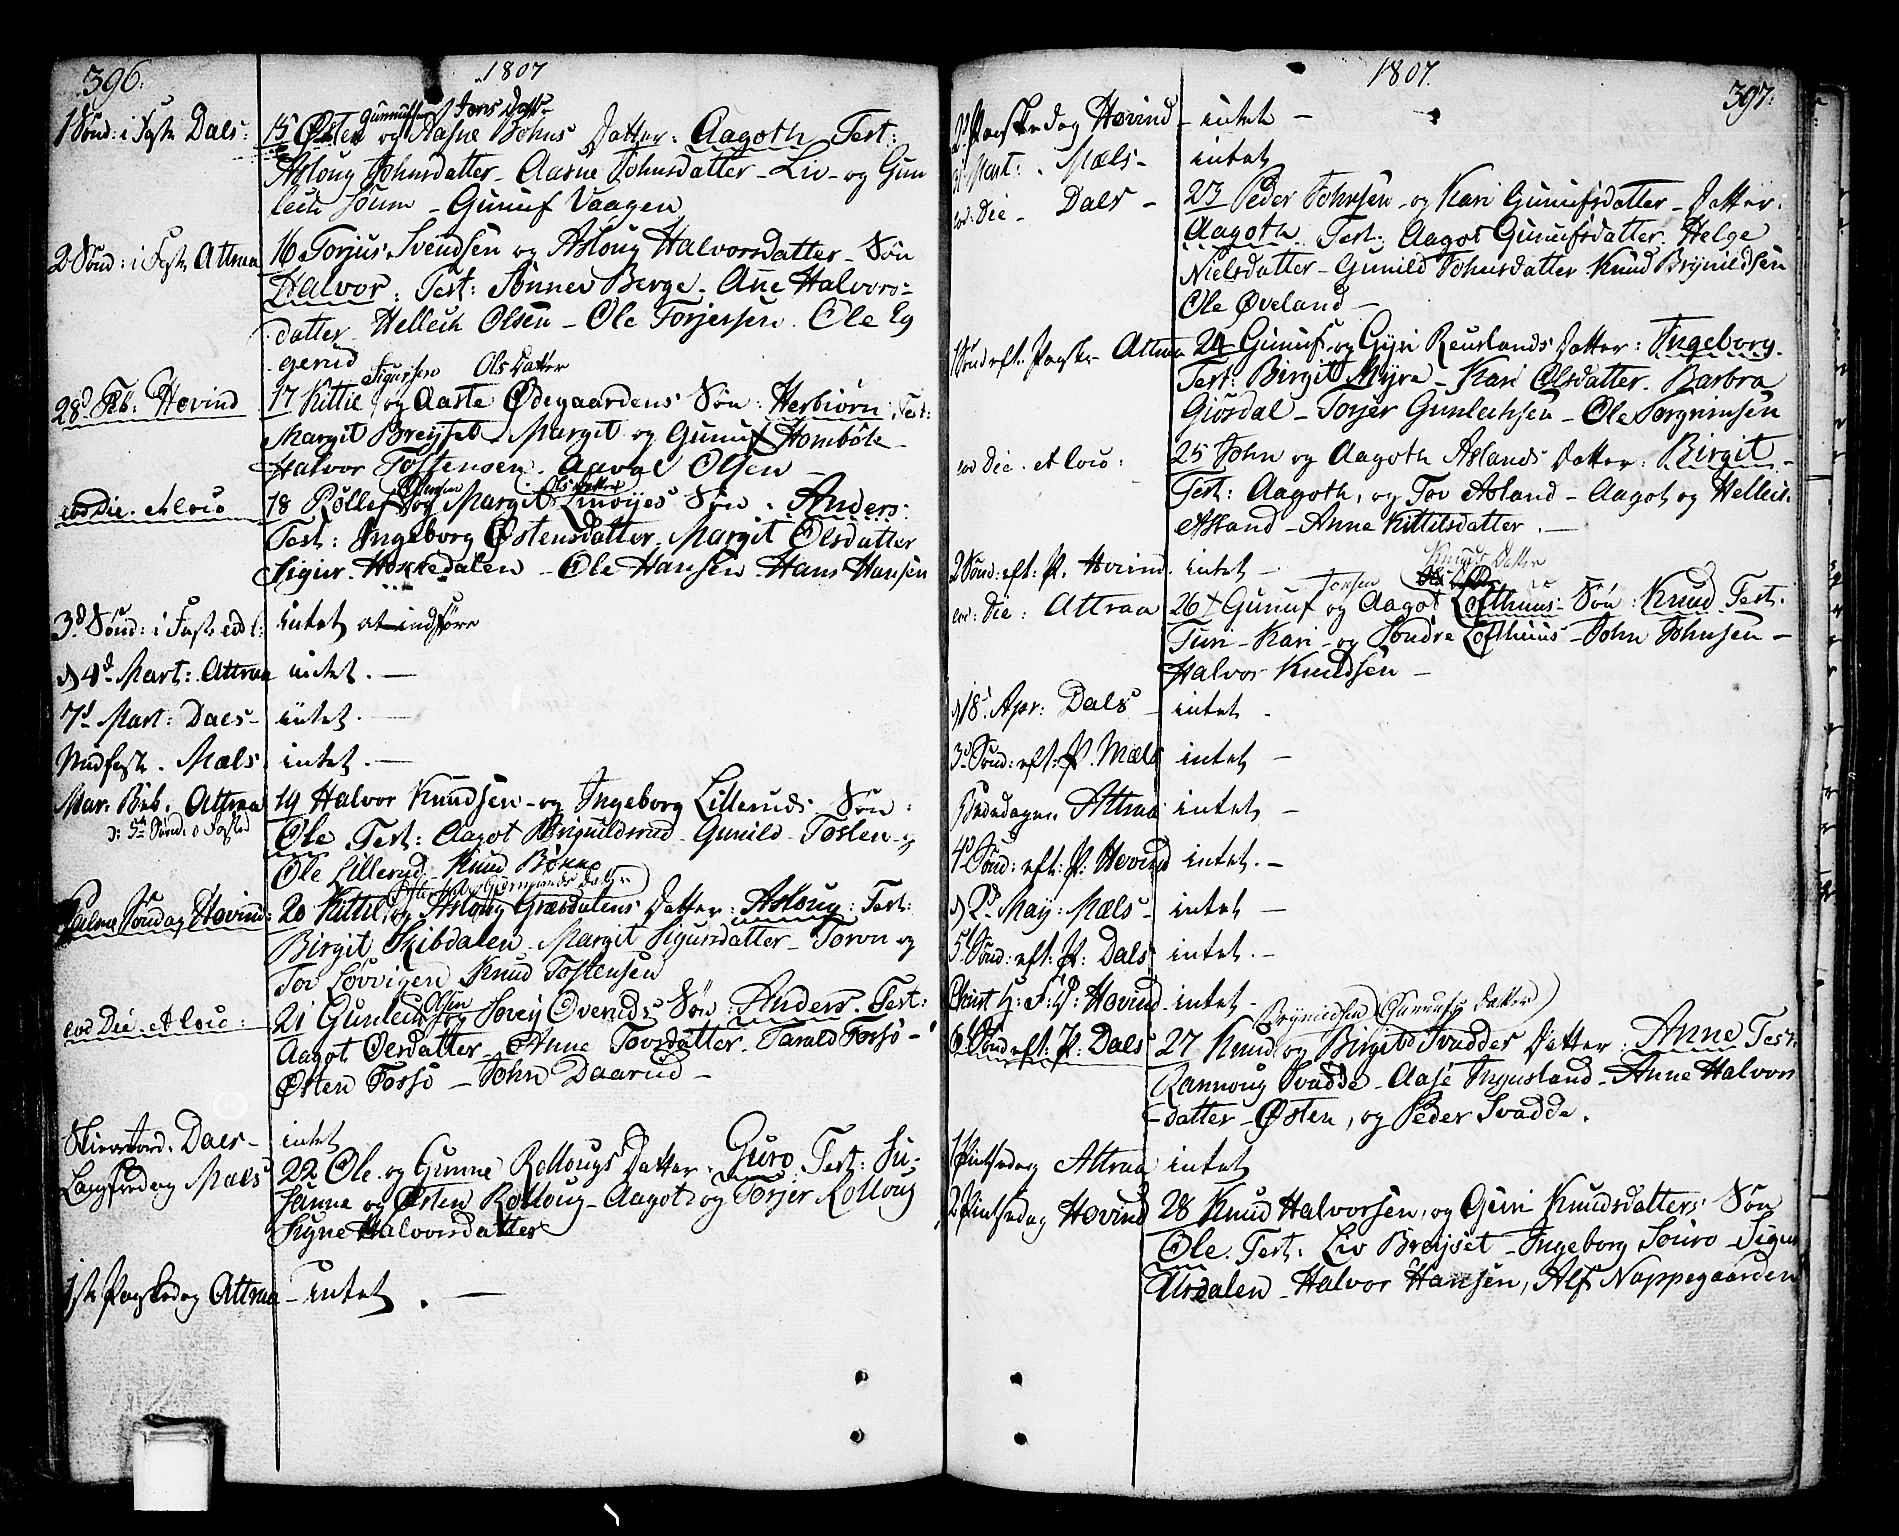 396.
1807
1 Sønd: i Faste Dals: 15 Østen Gunnulfsen og Aasne Torsdatter Bøhns Datter: Aagoth Test:
Asloug Johnsdatter - Aasne Johnsdatter - Liv - og Gun
lech Soum - Gunuf Vaagen
2 Sønd: i Faste Attraa 16 Torjus Svendsen og Asloug Halvorsdatter - Søn
Halvor. Test: Sønnev Berge - Anne Halvors-
datter - Hellech Olsen - Ole Torjersen. Ole Eg
gerud
Sigursen Ols Datter
28d Feb: Hovind 17 Kittil og Aaste Ødegaardens Søn: Herbiørn Test:
Margit Breyset. Margit og Gunuf Hombøle -
Halvor Tostensen. Aavol Olsen -
Østensen Ols Datter
eod Die. et loco 18 Rollef og Margit Linøyes Søn: Anders:
Test: Ingeborg Østensdatter. Margit Olsdatter
Sigur. Hokkedalen - Ole Hansen - Hans Hansen
3d Sønd: i Faste eod l: intet at indføre
d 4d Mart: Attraa intet. -
7d Mart: Dals - intet. -
Midfaste. Mæls intet. -
Mar: Beb: Attraa 19 Halvor Knudsen - og Ingeborg Lilleruds Søn:
Ɔ: 5te Sønd: i Fasten
Ole Test: Aagot Briguldsrud - Gunild - Tosten - og
Ole Lillerud - Knud Bøkko
Palme Søndag Hovind: 20 Kittil og Asloug Græsdalens Datter: Asloug: Test:
Birgit Skibdalen - Margit Sigursdatter - Toron og
Tov Løvvigen Knud Tostensen
Olsen
eod Die. et loco: 21 Gunlech og Sovey Øveruds Søn: Anders. Test:
Aagot Olsdatter - Anne Tovsdatter - Tarald Forsø -
Østen Forsø - John Daarud -
Skiærtord. Dals - intet
Langfredag Mæls 22 Ole og Gunne Rollougs Datter: Guro Test: Su-
sanne og Østen Rolloug - Aagot og Torjer Rolloug
Signe Halvorsdatter
1ste Paaskedag Attraa - intet. -
1807.
397:
2d Paaskedag Hovind - intet -
Mart: . Mæls - intet
eod: Die - Dals - 23 Peder Johnsen - og Kari Gunufsdatter - Datter:
Aagoth. Test: Aagot Gunufsdatter. Helge
Nielsdatter - Gunild Johnsdatter Knud Brynildsen
Ole Øveland -
1 Sønd eft: Paaske Attraa 24 Gunuf og Gyri Reuslands Datter: Ingeborg.
Test: Birgit Myre - Kari Olsdatter. Barbra
Giøsdal - Torjer Gunlechsen - Ole Torgrimsen
eod Die. et loco: 25 John og Aagoth Aslands Datter: Birgit -
Test: Aagoth, og Tov Asland - Aagot og Hellech
Asland - Anne Kittilsdatter. -
2 Sønd: eft: P. Hovind. intet -
Jonsen Knuds Datter
eod: Die: Attraa 26 Gunuf og Aagot Lofthuus Søn: Knud Test:
Turi - Kari - og Sondre Lofthuus - John Johnsen -
Halvor Knudsen -
d 18d Apr: Dals - intet -
3d Sønd: eft: P. Mæls intet -
Bededagen Attraa intet -
4d Sønd: eft: P: Hovind intet. -
d 2d May: Mæls - intet -
5d Sønd: eft: P: Dals intet. -
Christ H: F: D: Hovind intet -
Brynildsen Gunnufs Datter
6 Sønd eft: P: Dals 27 Knud og Birgit Svadde Datter: Anne Test:
Rannoug Svadde - Aase Ingusland - Anne Halvors
datter - Østen, og Peder Svadde.
1 Pintsedag Attraa intet
2 Pintsedag Hovind 28 Knud Halvorsen, og Guri Knudsdatters Søn
Ole. Test: Liv Breyset - Ingeborg Souro - Sigur
Urdalen - Halvor Hansen, Alf Nappegaarden